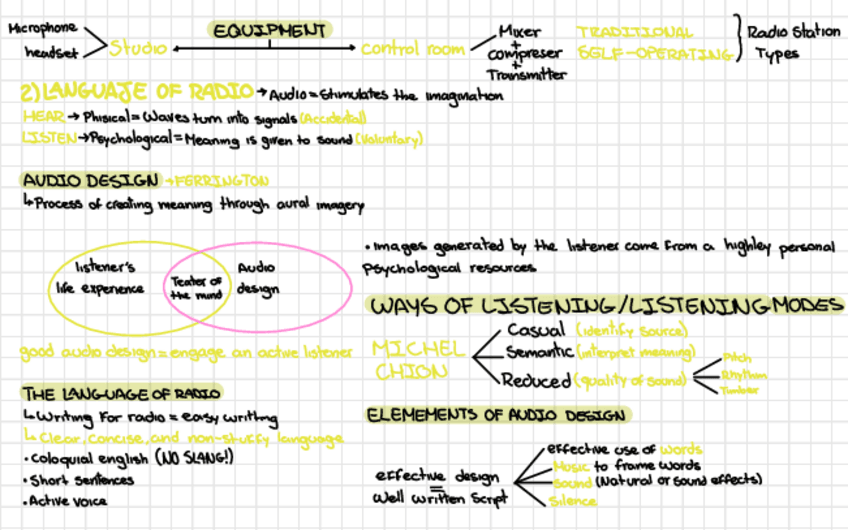 Microphone
headset
Studio
EQUIPMENT
control room
Mixer
+
compreser
+
Transmitter
TRADITIONAL
SELF-OPERATING
Radio Station
Types
2) LANGUAJE OF RADIO → Audio = Stimulates the imagination
HEAR → Phisical = Waves turn into signals (Accidental)
LISTEN → Psychological = Meaning is given to sound (Voluntary)
AUDIO DESIGN → FERRINGTON
↳ Process of creating meaning through aural imagery
listener's
life experience
Teater of
the mind
Audio
design
• Images generated by the listener come from a highley personal
Psychological resources
good audio design = engage an active listener
WAYS OF LISTENING/LISTENING MODES
MICHEL
CHION
Casual (identify source)
Semantic (interpret meaning)
Reduced (quality of sound)
Pitch
Rhythm
Timber
THE LANGUAGE OF RADIO
↳ Writing for radio = easy writing
↳ Clear, concise, and non-stuffy language
• Coloquial english (NO SLANG!)
• Short sentences
• Active voice
ELEMEMENTS OF AUDIO DESIGN
effective design
=
Well written Script
effective use of words
Music to frame words
Sound (Natural or Sound effects)
Silence